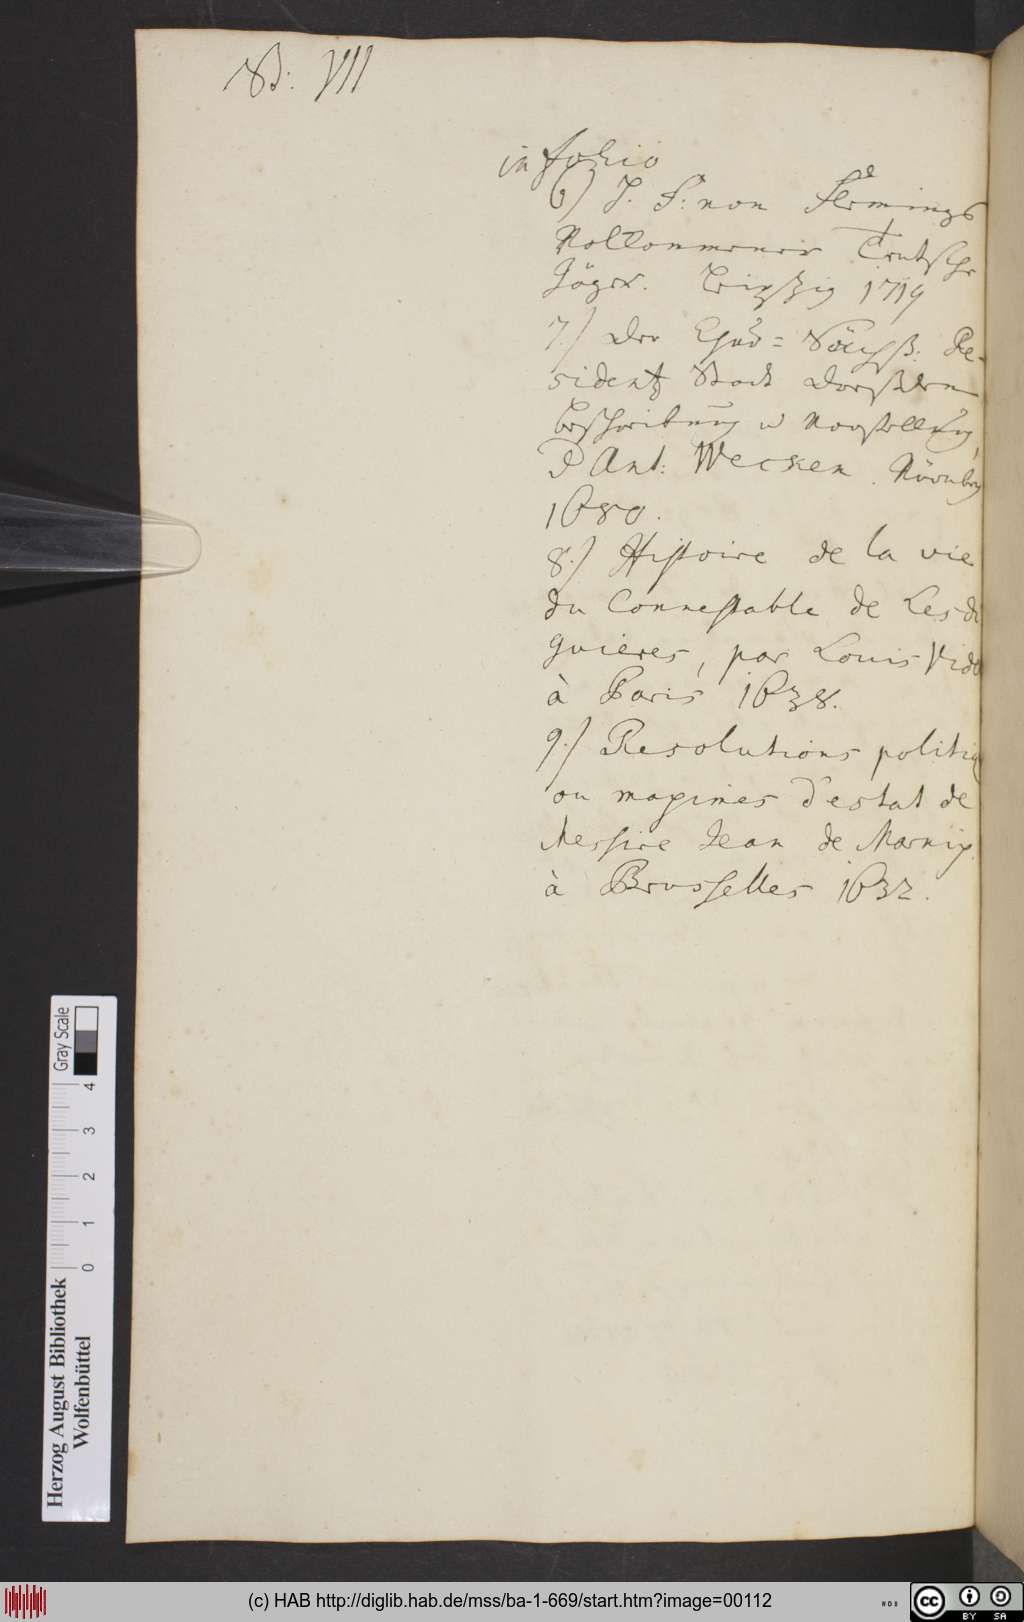 VII
in folio
6) J. F: von Flemings
Vollkommener Teutsche
Jäger. Leipzig 1719
7.) Der Chur= Sächß: Re-
sidentz Stadt Dreßden
Beschreibung u Vorstellung,
Ant: Wecken. Nürnberg
1680.
8.) Histoire de la vie
du Connestable de Lesdi
guieres, par Louis Vide
à Paris 1638.
9.) Resolutions politiq
ou maximes d'estat de
Messire Jean de Marnix.
à Brusselles 1632.
Gray Scale
4 3 2 1 0
Herzog August Bibliothek
Wolfenbüttel
(c) HAB http://diglib.hab.de/mss/ba-1-669/start.htm?image=00112
cc BY SA